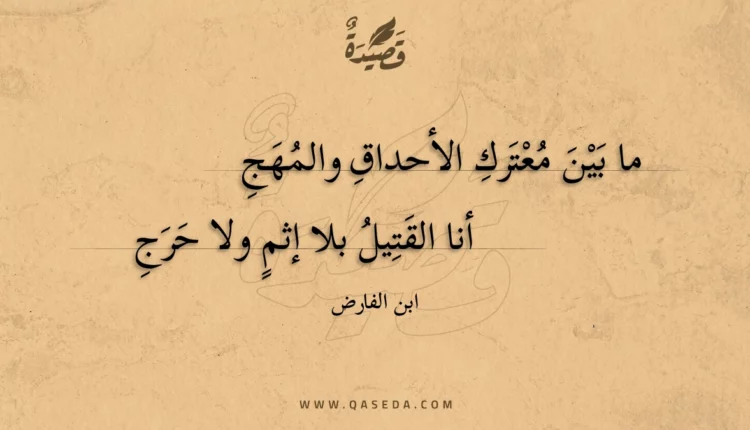 قَصِيْدَةٌ
ما بَيْنَ مُعْتَرَكِ الأحداقِ والمُهَجِ
أنا القَتِيلُ بلا إثمٍ ولا حَرَجِ
ابن الفارض
WWW.QASEDA.COM